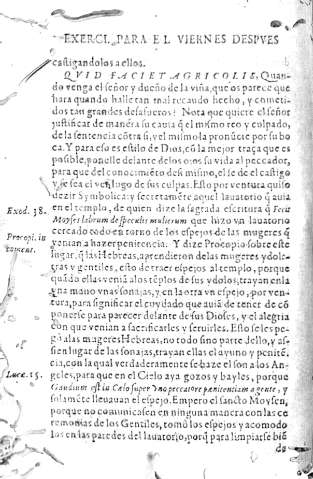 EXERCI. PARA EL VIERNES DESPVES
castigandolos a ellos.
QVID FACIET AGRICOLIS, Quan-
do venga el señor y dueño de la viña, que os parece que
hara quando halle tan mal recaudo hecho, y cometi-
dos tan grandes desafueros? Nota que quiere el señor
justificar de manera su causa q̃ el mismo reo y culpado,
de la sentencia cõtra si, y el mismo la pronũcie por su bo
ca. Y para eso es estilo de Dios, cõ la mejor traça que es
posible, ponelle delante de los ojos su vida al peccador,
para que del conocimiẽto de si mismo, el se de el castigo
y se sea el verdugo de sus culpas. Esto por ventura quiso
dezir Symbolica: y secretamẽte aquel lauatorio q̃ auia
en el templo, de quien dize la sagrada escritura q̃ Fecit
Exod. 38.
Moyses labrum de speculis mulierum que hizo vn lauatorio
cercado todo en torno de los espejos de las mugeres q̃
Procopi. in
venian a hazer penitencia. Y dize Procopio sobre este
lugar, q̃ las Hebreas, aprendieron de las mugeres ydole-
tras y gentiles, esto de traer espejos al templo, porque
quãdo ellas veniã a los tẽplos de sus ydolos, trayan en la
vna mano vnas sonajas, y en la otra vn espejo, por ven-
tura, para significar el cuydado que auiã de tener de cõ
ponerse para parecer delante de sus Dioses, y el alegria
con que venian a sacrificarles y seruirles. Esto se les pe-
gò a las mugeres Hebreas, no todo sino parte dello, y as-
si en lugar de las sonajas, trayan ellas el ayuno y penitẽ-
cia, con la qual verdaderamente se haze el son a los An-
Lucæ. 15.
geles, para que en el Cielo aya gozos y bayles, porque
Gaudium est in Cælo super vno peccatore pœnitentiam agente, y
solamẽte lleuauan el espejo. Empero el sancto Moysen,
porque no comunicasen en ninguna manera con las ce-
remonias de los Gentiles, tomò los espejos y acomodo
los en las paredes del lauatorio, porq̃ para limpiarse biẽ
de